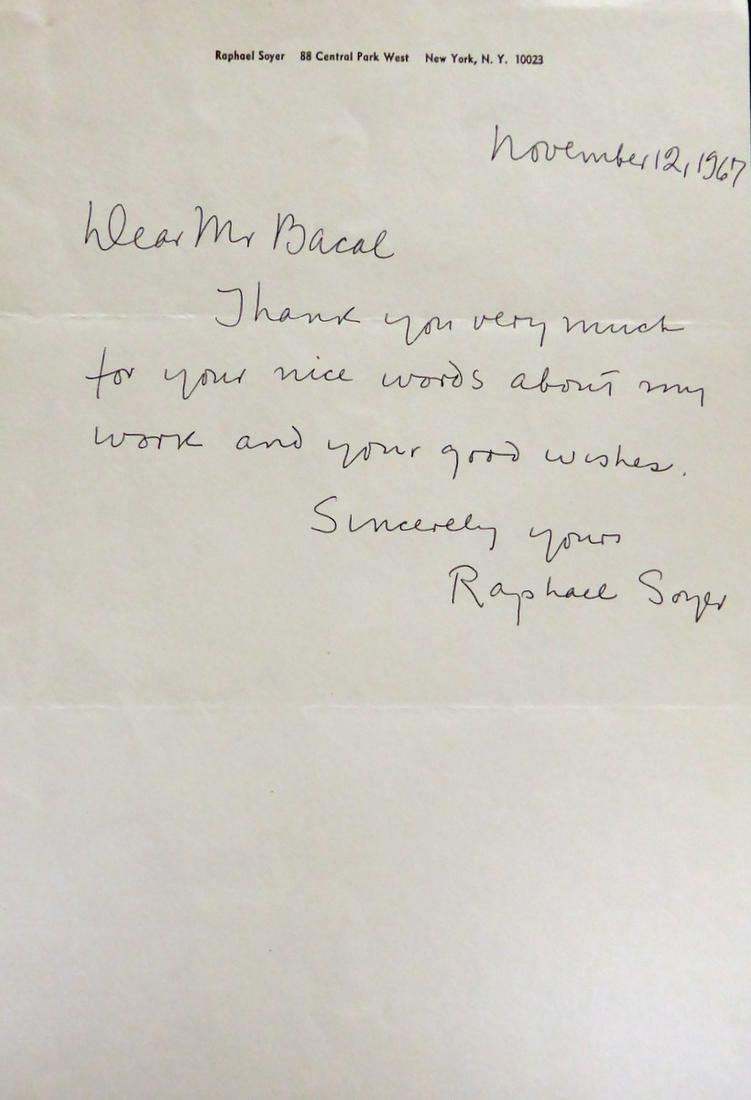 Raphael Soyer 88 Central Park West New York, N. Y. 10023
November 12, 1967
Dear Mr Bacal
Thank you very much
for your nice words about my
work and your good wishes.
Sincerely yours
Raphael Soyer